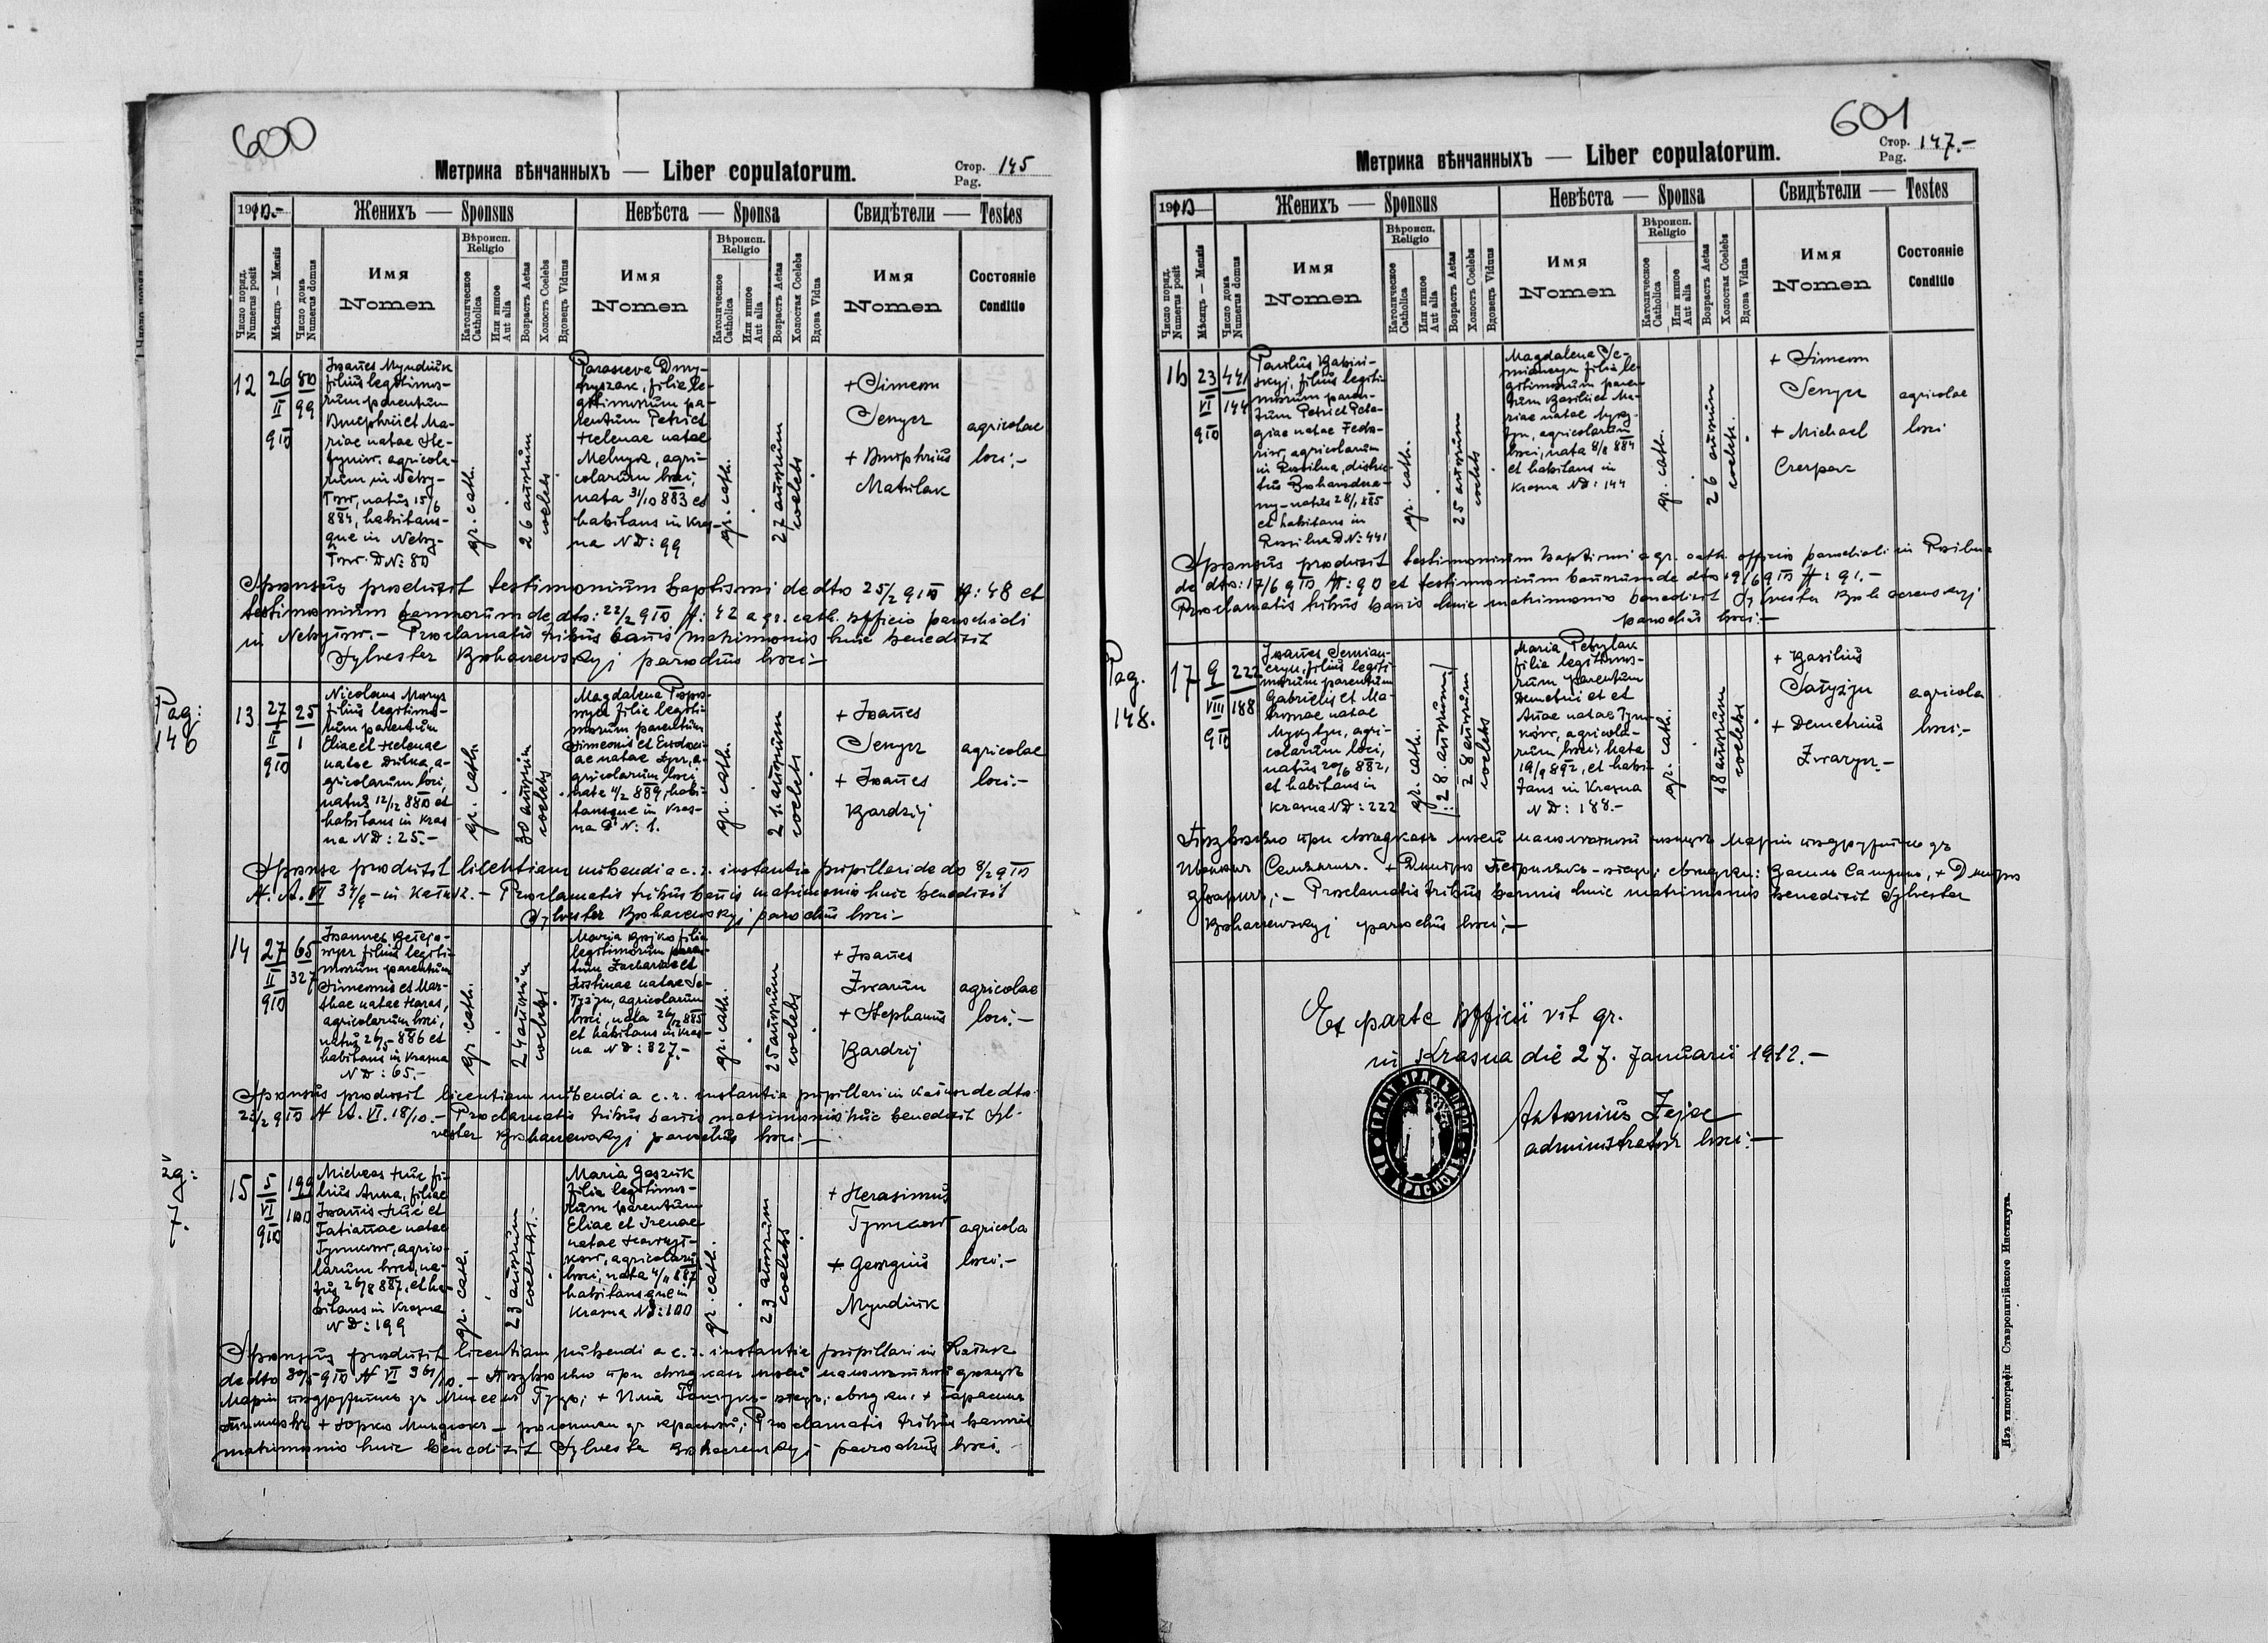 600
Метрика вѣнчанныхъ — Liber copulatorum.
Стор. Pag. 145
1910.-
Женихъ — Sponsus
Невѣста — Sponsa
Свидѣтели — Testes
Число поряд. Numerus posit
Мѣсяць — Mensis
Число дома Numerus domus
Имя Nomen
Вѣроисп. Religio
Католическое Catholica
Или инное Aut alia
Возрастъ Aetas
Холостъ Coelebs
Вдовецъ Viduus
Имя Nomen
Вѣроисп. Religio
Католическое Catholica
Или инное Aut alia
Возрастъ Aetas
Холостая Coelebs
Вдова Vidua
Имя Nomen
Состояніе Conditio
12
26 II 910
80 99
Joañes Myndiuk
filius legitimo-
rum parentum
Onuphrii et Ma-
riae natae
agricola-
rum in Neby-
Tow, natus 15/6
884, habitans-
que in Neby-
Tow. D№: 80
gr. cath.
26 annorum
coelebs
Parasceva Dmy-
tryszak, filia le-
gitimorum pa-
rentum Petri et
Helenae natae
Melnyk, agri-
colarum loci,
nata 31/10 883 et
habitans in Kras-
na ND: 99
gr. cath.
27 annorum
coelebs
+ Simeon
Senyer
+ Onuphrius
Matulak
agricolae
loci:-
Sponsus produxit testimonium baptismi de dto 25/2 910 №: 48 et
testimonium bannorum de dto: 22/2 910 №: 42 a gr. cath. officio parochiali
in Nebyłow. - Proclamatis tribus bañis matrimonio huic benedixit
Sylvester Bohaczewskyj parochus loci:-
Pag:
146
13
27 II 910
25 1
Nicolaus Morys
filius legitimo-
rum parentum
Eliae et Helenae
natae Dilka, a-
gricolarum loci,
natus 12/12 880 et
habitans in Kras
na ND: 25.-
gr. cath.
30 annorum
coelebs
Magdalena Popo-
wycz filia legiti-
morum parentum
Simeonis et Eudoci-
ae natae a-
gricolarum loci
nata 4/2 889, habi-
tansque in Kras-
na D N: 1.
gr. cath.
21. annorum
coelebs
+ Joañes
Senyer
+ Joañes
Bardzij
agricolae
loci:-
Sponsa produxit licentiam nubendi a c. r. instantia pupillari de do 8/2 910
in Kałusz. - Proclamatis tribus bañis matrimonio huic benedixit
Sylvester Bohaczewskyj parochus loci:-
14
27 II 910
65 327
Joannes
filius legiti-
morum parentum
Simeonis et Mar-
thae natae Haras,
agricolarum loci,
natus 26/5 886 et
habitans in Krasna
ND: 65.-
gr. cath.
24 annorum
coelebs
Maria Bojko filia
legitimorum paren-
tum Zachariae et
Justinae natae Sa-
agricolarum
loci, nata 26/2 885
et habitans in Kras-
na ND: 327.-
gr. cath.
25 annorum
coelebs
+ Joañes
Zwarun
+ Stephanus
Bardzij
agricolae
loci:-
Sponsus produxit licentiam nubendi a c. r. instantia pupillari in Kałusz de dto.
22/2 910 A. VI. 18/10. - Proclamatis tribus bañis matrimonio huic benedixit Syl-
vester Bohaczewskyj parochus loci:-
7.
15
5 VI 910
199 100
Micheas Huc fi-
lius Anna, filiae
Joañis Huc et
Tatianae natae
Tymkow, agrico-
larum loci, na-
tus 26/8 887, et ha-
bitans in Krasna
ND: 199
gr. cath.
23 annorum
coelebs.-
Maria Gaszuk
filia legitimo-
rum parentum
Eliae et Irenae
natae
agricolarum
loci, nata 4/11 887
habitansque in
Krasna ND: 100
gr. cath.
23 annorum
coelebs
+ Herasimus
Tymkow
+ Georgius
Myndiuk
agricola
loci:-
Sponsus produxit licentiam nubendi a c. r. instantia pupillari in Kałusz
de dto 30/5 910 N VI
Proclamatis tribus bannis
matrimonio huic benedixit Sylvester Bohaczewskyj parochus loci.
601
Метрика вѣнчанныхъ — Liber copulatorum.
Стор. Pag. 147.-
1910
Женихъ — Sponsus
Невѣста — Sponsa
Свидѣтели — Testes
Число поряд. Numerus posit
Мѣсяць — Mensis
Число дома Numerus domus
Имя Nomen
Вѣроисп. Religio
Католическое Catholica
Или инное Aut alia
Возрастъ Aetas
Холостъ Coelebs
Вдовецъ Viduus
Имя Nomen
Вѣроисп. Religio
Католическое Catholica
Или инное Aut alia
Возрастъ Aetas
Холостая Coelebs
Вдова Vidua
Имя Nomen
Состояніе Conditio
16
23 VI 910
441 144
Paulus Babin-
skyj, filius legiti-
morum paren-
tum Petri et Pela-
giae natae Fedo-
riw, agricolarum
in Rosilna, distric-
tus Bohorodcza-
ny - natus 28/1 885
et habitans in
Rosilna D N: 441
gr. cath.
25 annorum
coelebs
Magdalena Se-
mianczyn filia le-
gitimorum paren-
tum Basilii et Ma-
riae natae
agricolarum
loci, nata 8/8 884
et habitans in
Krasna ND: 144
gr. cath.
26 annorum
coelebs
+ Simeon
Senyer
+ Michael
Czerpak
agricolae
loci
Sponsus produxit testimonium baptismi a gr. cath. officio parochiali in Rosilna
de dto: 17/6 910 №: 90 et testimonium bannorum de dto 19/6 910 №: 91.-
Proclamatis tribus bañis huic matrimonio benedixit Sylvester Bohaczewskyj
parochus loci:-
Pag.
148.
17
9 VIII 910
222 188
Joañes Semian-
czyn, filius legiti-
morum parentum
Gabrielis et Ma-
tronae natae
Mykytyn, agri-
colarum loci,
natus 20/6 882,
et habitans in
Krasna ND: 222
gr. cath.
/:28. annorum/
28 annorum
coelebs
Maria Petrylak
filia legitimo-
rum parentum
Demetrii et et
Añae natae Tym-
kow, agricola-
rum loci, nata
19/9 892, et habi-
tans in Krasna
ND: 188.-
gr. cath.
18 annorum
coelebs
+ Basilius
+ Demetrius
Zwarycz.-
agricola
loci:-
Proclamatis tribus bannis huic matrimonio benedixit Sylvester
Bohaczewskyj parochus loci:-
Ex parte officii rit gr.
in Krasna die 27. Januarii 1912.-
Antonius Zejac
administrator loci:-
Изъ типографіи Ставропигійского Института.